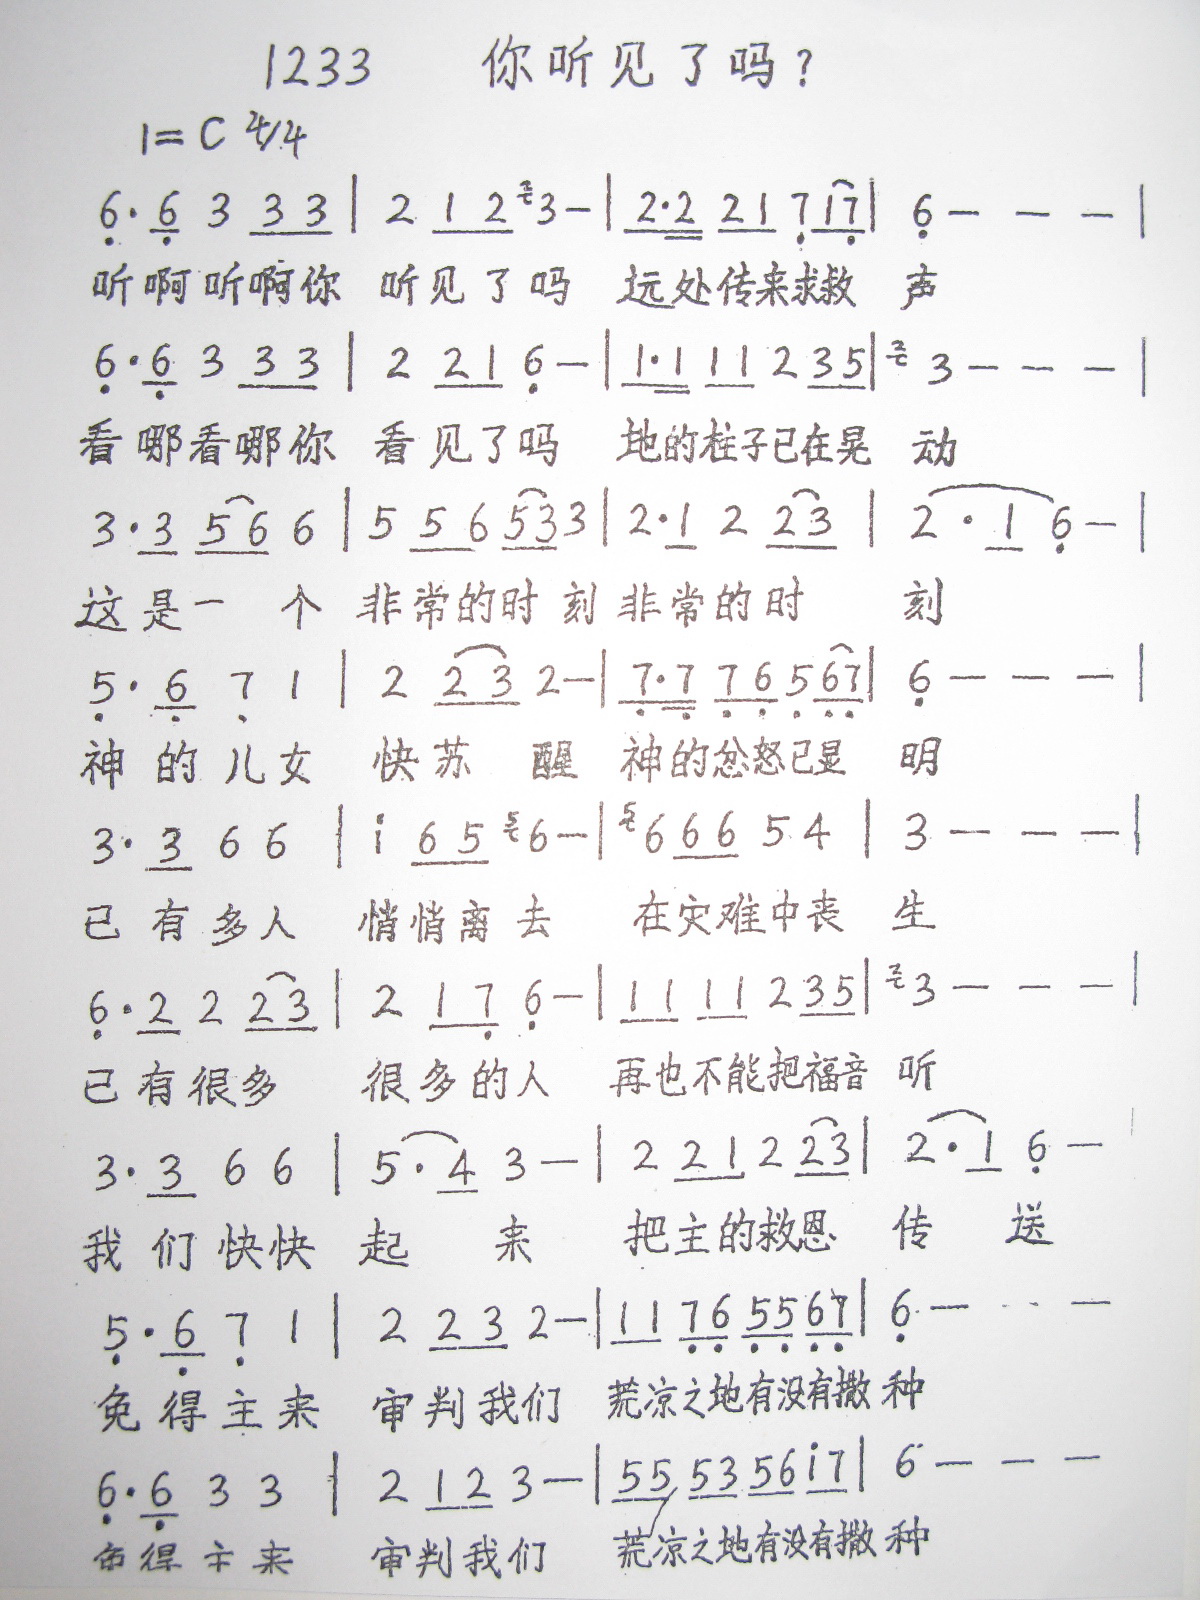 1233 你听见了吗?
1= C 4/4
6· 6 3 3 3 | 2 1 2 3 3 — | 2·2 2 1 7 1 7 | 6 — — — |
听啊听啊你 听见了吗 远处传来求救 声
6· 6 3 3 3 | 2 2 1 6 — | 1·1 1 1 2 3 5 | 2 3 — — — |
看哪看哪你 看见了吗 地的柱子已在晃 动
3· 3 5 6 6 | 5 5 6 5 3 3 | 2· 1 2 2 3 | 2 · 1 6 — |
这是一个 非常的时刻 非常的时 刻
5· 6 7 1 | 2 2 3 2 — | 7·7 7 6 5 6 7 | 6 — — — |
神的儿女 快苏醒 神的忿怒已显 明
3· 3 6 6 | i 6 5 5 6 — | 5 6 6 6 5 4 | 3 — — — |
已有多人 悄悄离去 在灾难中丧 生
6· 2 2 2 3 | 2 1 7 6 — | 1 1 1 1 2 3 5 | 2 3 — — — |
已有很多 很多的人 再也不能把福音 听
3· 3 6 6 | 5· 4 3 — | 2 2 1 2 2 3 | 2· 1 6 —
我们快快 起来 把主的救恩 传送
5· 6 7 1 | 2 2 3 2 — | 1 1 7 6 5 5 6 7 | 6 — — —
免得主来 审判我们 荒凉之地有没有撒 种
6· 6 3 3 | 2 1 2 3 — | 5 5 5 3 5 6 i 7 | 6 — — —
免得主来 审判我们 荒凉之地有没有撒 种